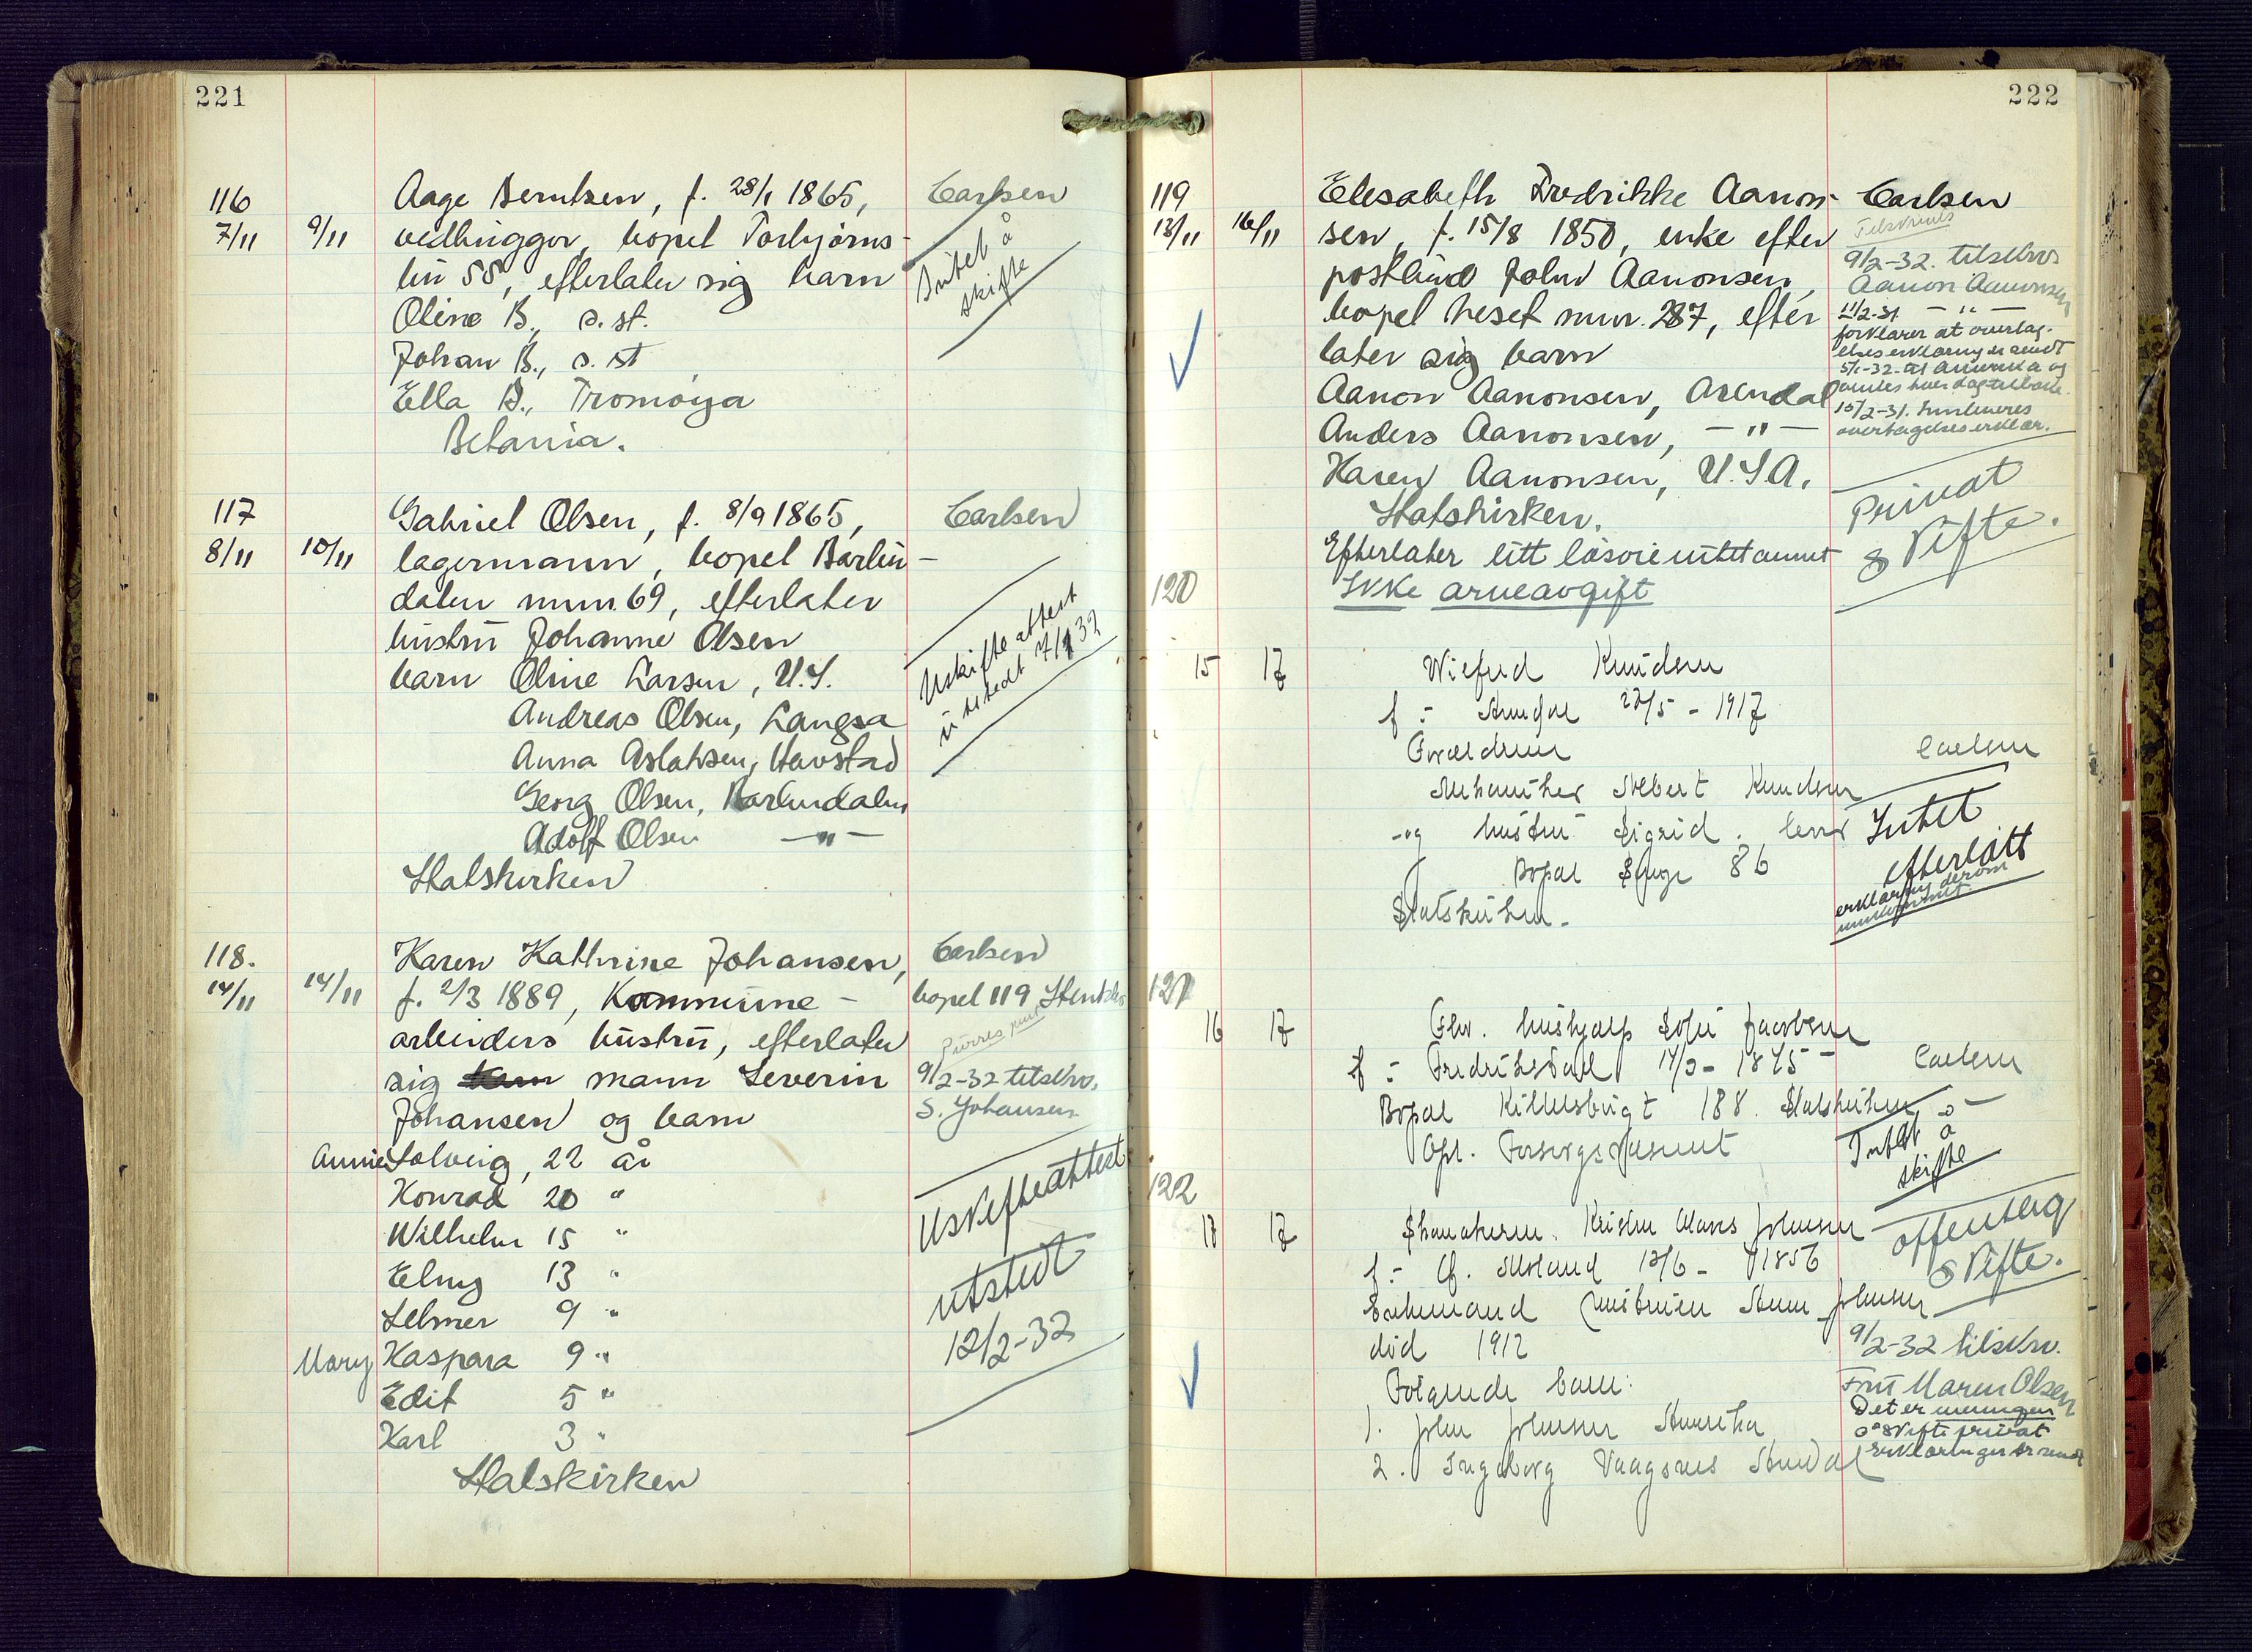 221
116
7/11 9/11
Aage Berntsen, f. 28/1 1865,
vedhugger, bopel Torbjørns-
bu 55, efterlater sig barn
Oline B., s. st.
Johan B., s. st.
Ella B., Tromøya
Betania.
Carlsen
Intet å
skifte
117
8/11 10/11
Gabriel Olsen, f. 8/9 1865,
lagermann, bopel Barbu-
dalen num 69, efterlater
hustru Johanne Olsen
barn Oline Larsen, U.S.
Andreas Olsen, Langsæ
Anna Aslaksen, Havstad
Georg Olsen, Barbudalen
Adolf Olsen —"—
Statskirken
Carlsen
Uskifteattest
utstedt 7/1 32
118.
14/11 14/11
Karen Kathrine Johansen,
f. 2/3 1889, Kommune-
arbeiders hustru, efterlater
sig mann Severin
Johansen og barn
Annie Solveig, 22 år
Konrad 20 "
Wilhelm 15 "
Elmy 13 "
Selmer 9 "
Mary Kaspara 9 "
Edit 5 "
Karl 3 "
Statskirken
Carlsen
bopel 119
9/2-32 tilskrv.
S. Johansen
Uskifteattest
utstedt
12/2-32
222
119
13/11 16/11
Elisabeth Fredrikke Aanon-
sen, f. 15/8 1850, enke efter
postbud John Aanonsen,
bopel Heset num. 287, efter
later sig barn
Aanon Aanonsen, Arendal
Anders Aanonsen, —"—
Karen Aanonsen, U.S.A.
Statskirken.
Efterlater litt løsøre intet annet
Ikke arveavgift
Carlsen
Tilskrives
9/2-32. tilskrvs
Aanon Aanonsen
11/2-31 — " —
forklarer at overtag-
elseserklæring er sendt
5/1-32 til Amerika og
ventes hver dag tilbake.
15/2-31. Innleveres
overtagelseserklær.
Privat
skifte.
120
15 17
Wilfred Knudsen
f: Arendal 22/5 - 1917
Foreldrene
Mekaniker Albert Knudsen
og hustru Sigrid. lever
Bopæl 86
Statskirken.
Carlsen
Intet
efterlatt
erklæring derom
innkommet
121
16 17
Fhv. hushjelp Sofie Jacobsen
f: Fredrikstad 14/3 - 1875
Bopæl Kittelsbugt 188. Statskirken
Opl. Forsorgsvesenet
Carlsen
Intet å
skifte
122
17 17
Skomakerm. Kristen Olaus Johnsen
f: Ø. Moland 12/6 - 1856
Enkemand hustruen Anne Johnsen
død 1912
Følgende barn:
1. John Johnsen Amerika
2. Ingeborg Vaagsnes Arendal
offentlig
skifte.
9/2-32 tilskrv.
Fru Maren Olsen
Det er meningen
å skifte privat
Erklæringer er sendt